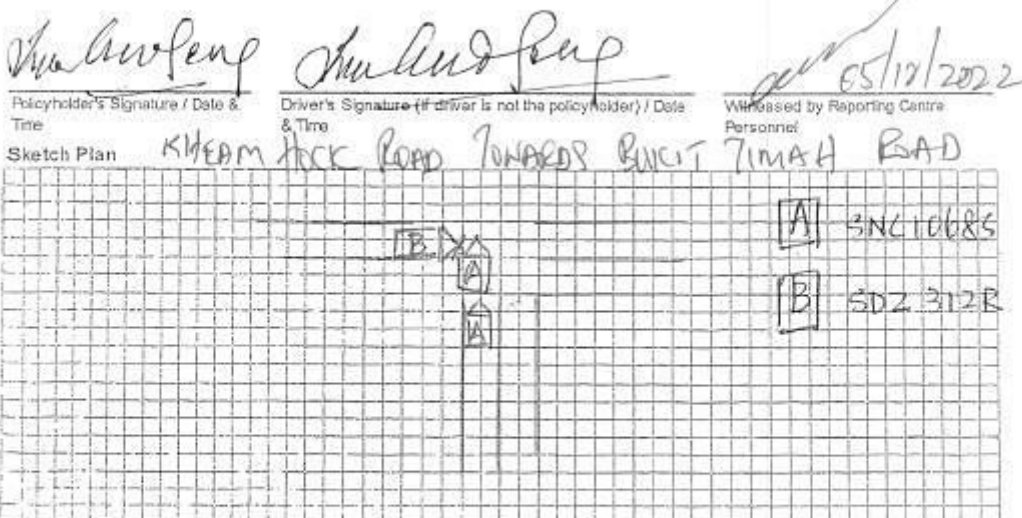 05/12/2022
Policyholder's Signature / Date & Time
Driver's Signature (if driver is not the policyholder) / Date & Time
Witnessed by Reporting Centre Personnel
Sketch Plan KHEAM HOCK ROAD TOWARDS BUKIT TIMAH ROAD
A SNC1068S
B
A
B SDZ 312R
A